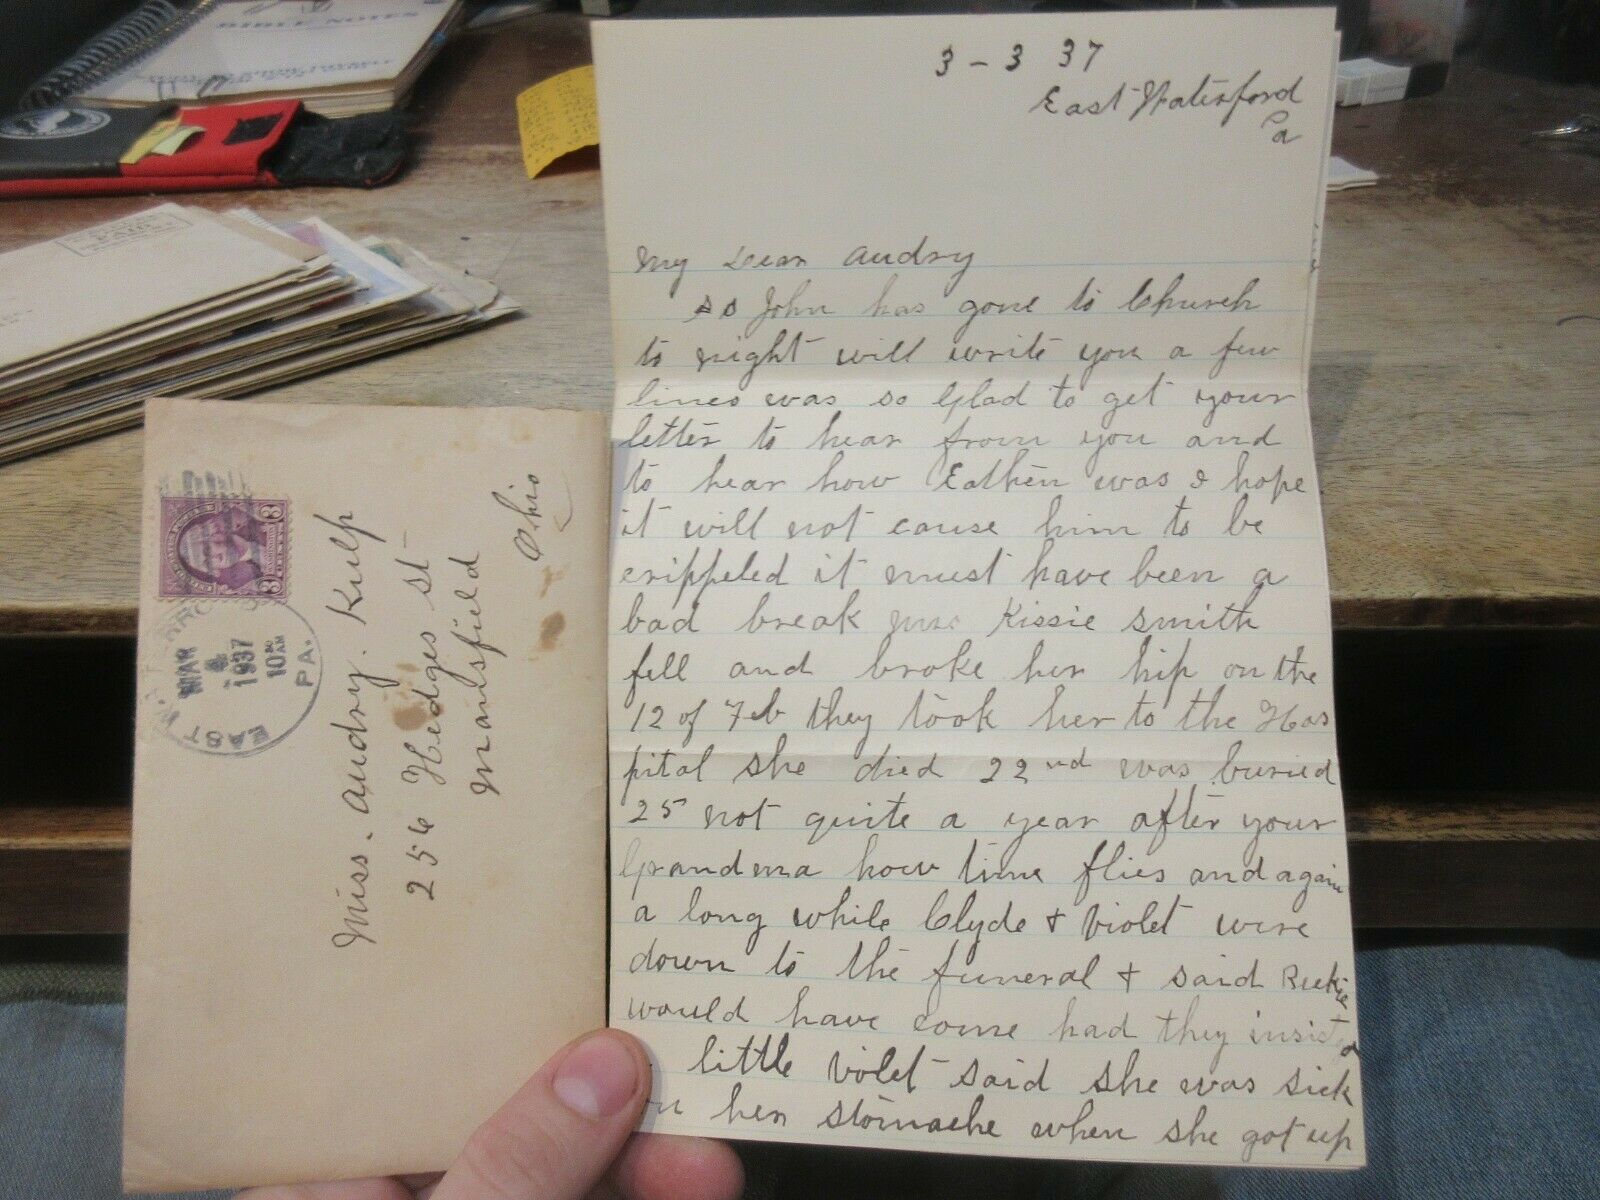 BIBLE NOTES
PAID
3 - 3 37
East Waterford
Pa
My Dear Audry
as John has gone to Church
to night will write you a few
lines was so Glad to get your
letter to hear from you and
to hear how was I hope
it will not cause him to be
crippeled it must have been a
bad break Mrs Kissie Smith
fell and broke her hip on the
12 of Feb they took her to the Hos
pital she died 22nd was buried
25 not quite a year after your
Grandma how time flies and again
a long while Clyde + Violet were
down to the funeral + said
would have come had they insisted
little Violet said she was sick
her stomache when she got up
3 3
CENTS
EAST WATERFORD
MAR
1937
10 AM
PA.
Miss. Audry. Kulp
256 Hedges St
Mansfield
Ohio